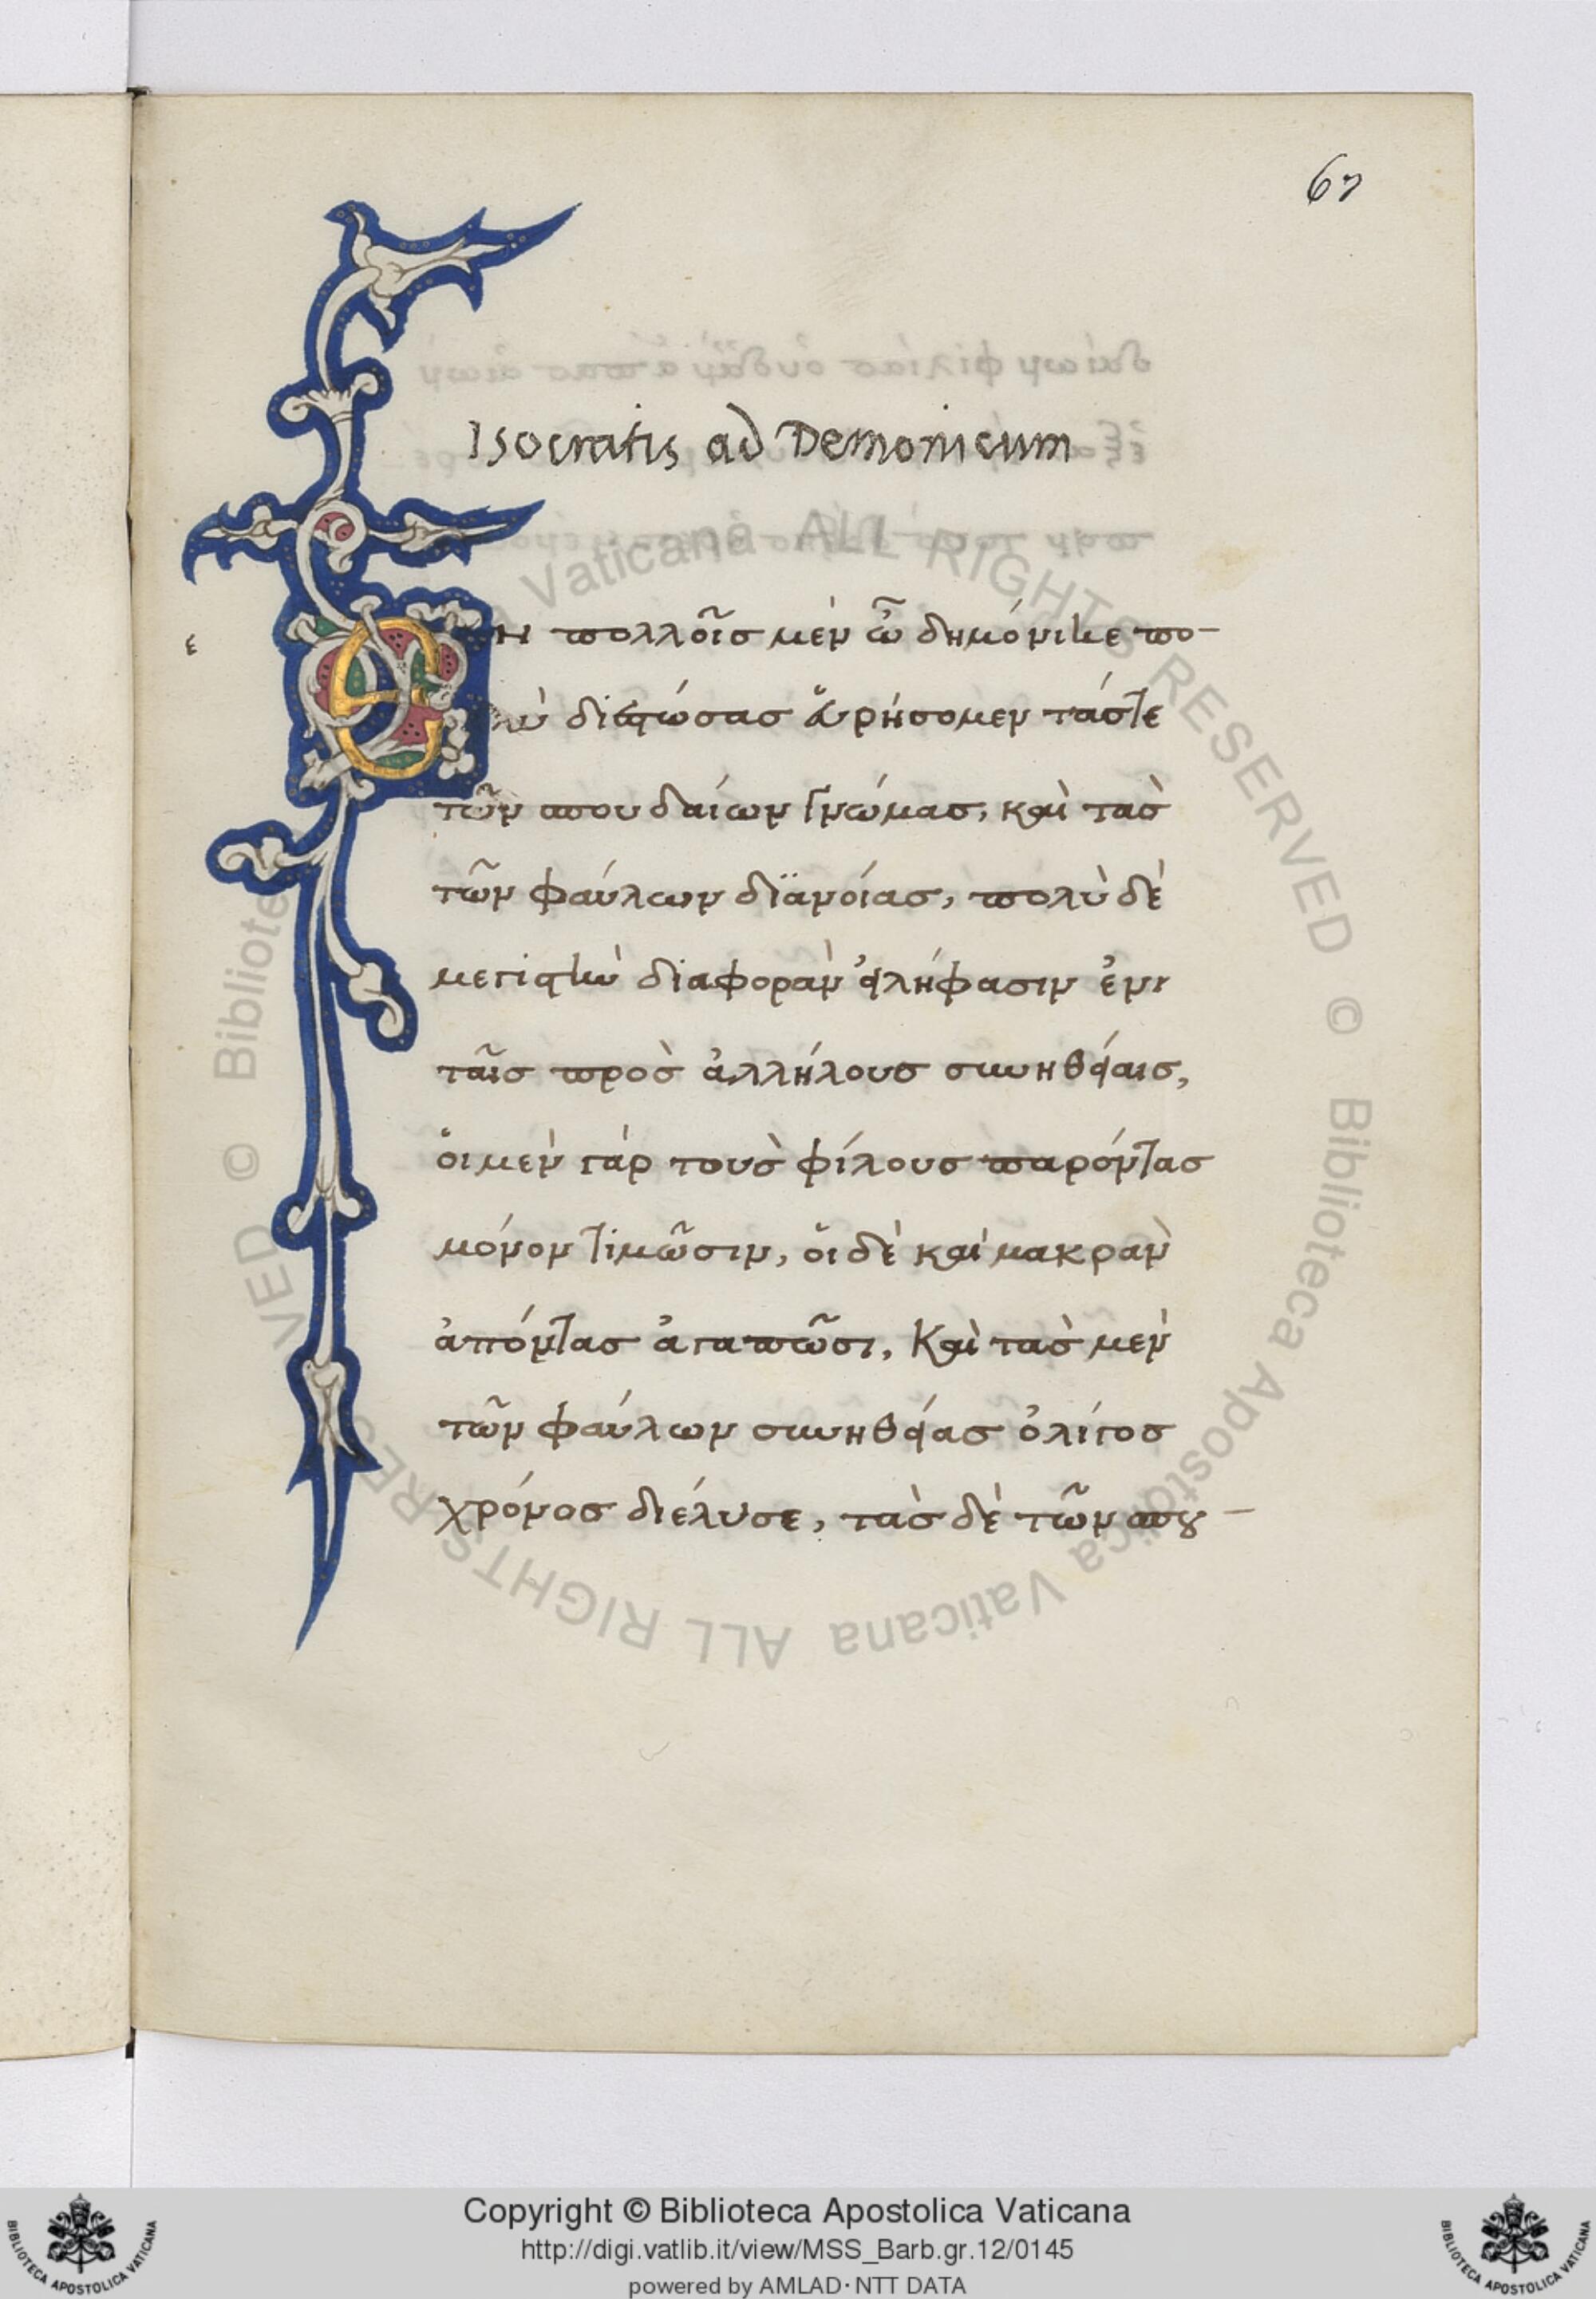 67
Isocratis ad Demonicum
ε
Ἐν πολλοῖς μὲν ὦ δημόνικε πο-
λὺ διεστώσας εὑρήσομεν τάς τε
τῶν σπουδαίων γνώμας, καὶ τὰς
τῶν φαύλων διανοίας, πολὺ δὲ
μεγίστην διαφορὰν εἰλήφασιν ἐν
ταῖς πρὸς ἀλλήλους συνηθείαις,
οἱ μὲν γὰρ τοὺς φίλους παρόντας
μόνον τιμῶσιν, οἱ δὲ καὶ μακρὰν
ἀπόντας ἀγαπῶσι, Καὶ τὰς μὲν
τῶν φαύλων συνηθείας ὀλίγος
χρόνος διέλυσε, τὰς δὲ τῶν σπου-
© Biblioteca Apostolica Vaticana ALL RIGHTS RESERVED © Biblioteca Apostolica Vaticana ALL RIGHTS RESERVED
Copyright © Biblioteca Apostolica Vaticana
http://digi.vatlib.it/view/MSS_Barb.gr.12/0145
powered by AMLAD·NTT DATA
BIBLIOTECA APOSTOLICA VATICANA
BIBLIOTECA APOSTOLICA VATICANA